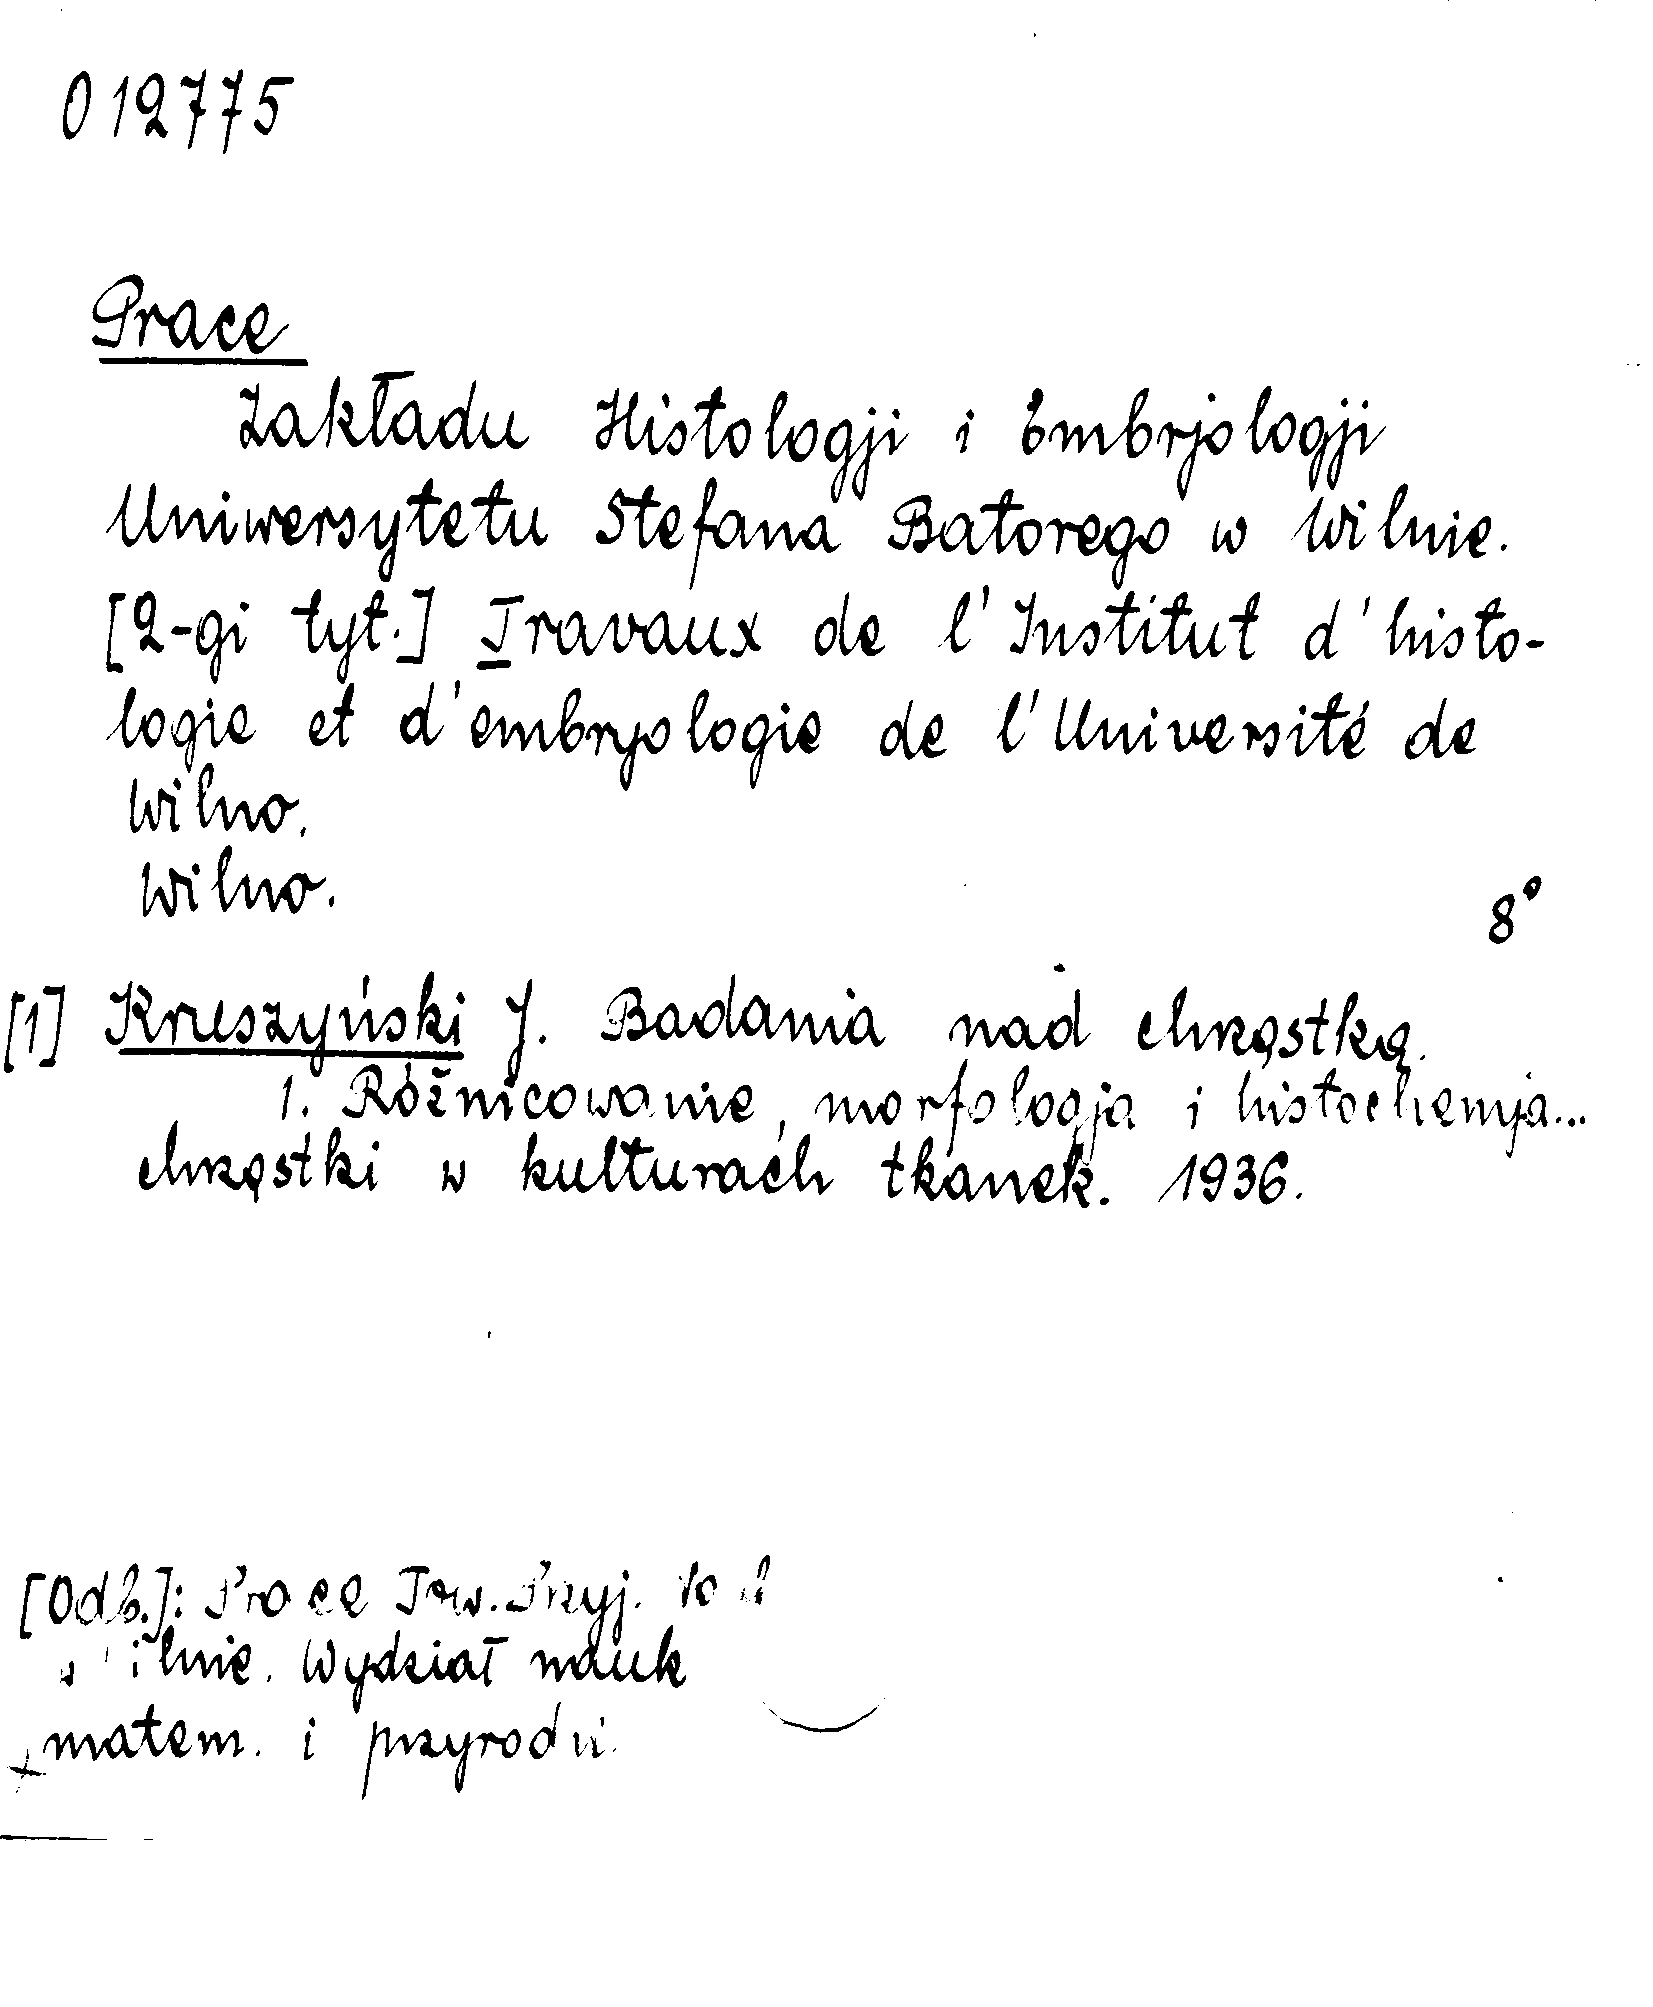 012775
Prace
Zakładu Histologji i Embrjologji
Uniwersytetu Stefana Batorego w Wilnie.
[2-gi tyt.] Travaux de l'Institut d'histo-
logie et d'embryologie de l'Université de
Wilno.
Wilno.
8°
[1] Kruszyński J. Badania nad chrząstką.
1. Różnicowanie, morfologja i histochemja...
chrząstki w kulturach tkanek. 1936.
[Odb.]: Prace Tow. Przyj.
w Wilnie. Wydział nauk
matem. i przyrodn.